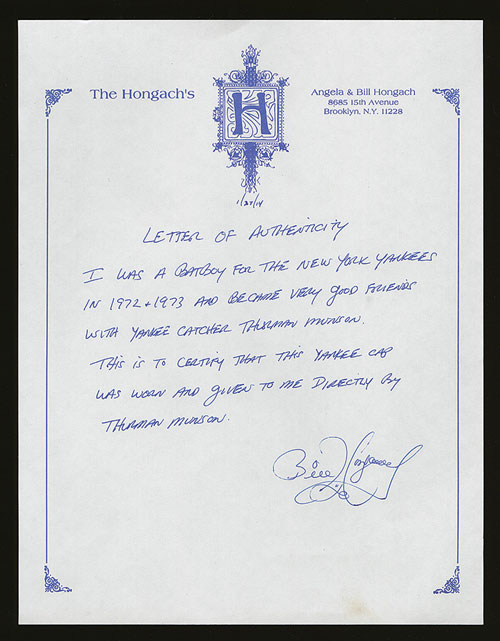 The Hongach's
H
Angela & Bill Hongach
8685 15th Avenue
Brooklyn, N.Y. 11228
1/27/14
LETTER OF AUTHENTICITY
I WAS A BATBOY FOR THE NEW YORK YANKEES
IN 1972 + 1973 AND BECAME VERY GOOD FRIENDS
WITH YANKEE CATCHER THURMAN MUNSON.
THIS IS TO CERTIFY THAT THIS YANKEE CAP
WAS WORN AND GIVEN TO ME DIRECTLY BY
THURMAN MUNSON.
Bill Hongach